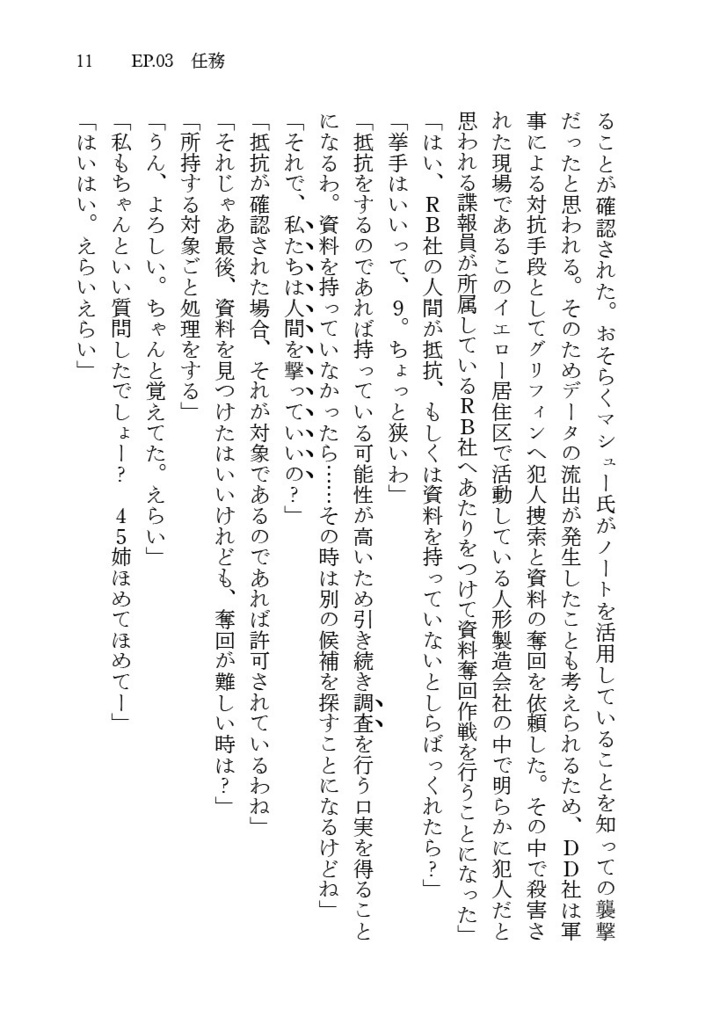 11　EP.03　任務
ることが確認された。おそらくマシュー氏がノートを活用していることを知っての襲撃
だったと思われる。そのためデータの流出が発生したことも考えられるため、ＤＤ社は軍
事による対抗手段としてグリフィンへ犯人捜索と資料の奪回を依頼した。その中で殺害さ
れた現場であるこのイエロー居住区で活動している人形製造会社の中で明らかに犯人だと
思われる諜報員が所属しているＲＢ社へあたりをつけて資料奪回作戦を行うことになった」
「はい、ＲＢ社の人間が抵抗、もしくは資料を持っていないとしらばっくれたら？」
「挙手はいいって、９。ちょっと狭いわ」
「抵抗をするのであれば持っている可能性が高いため引き続き調査を行う口実を得ること
になるわ。資料を持っていなかったら……その時は別の候補を探すことになるけどね」
「それで、私たちは人間を撃っていいの？」
「抵抗が確認された場合、それが対象であるのであれば許可されているわね」
「それじゃあ最後、資料を見つけたはいいけれども、奪回が難しい時は？」
「所持する対象ごと処理をする」
「うん、よろしい。ちゃんと覚えてた。えらい」
「私もちゃんといい質問したでしょー？　４５姉ほめてほめてー」
「はいはい。えらいえらい」